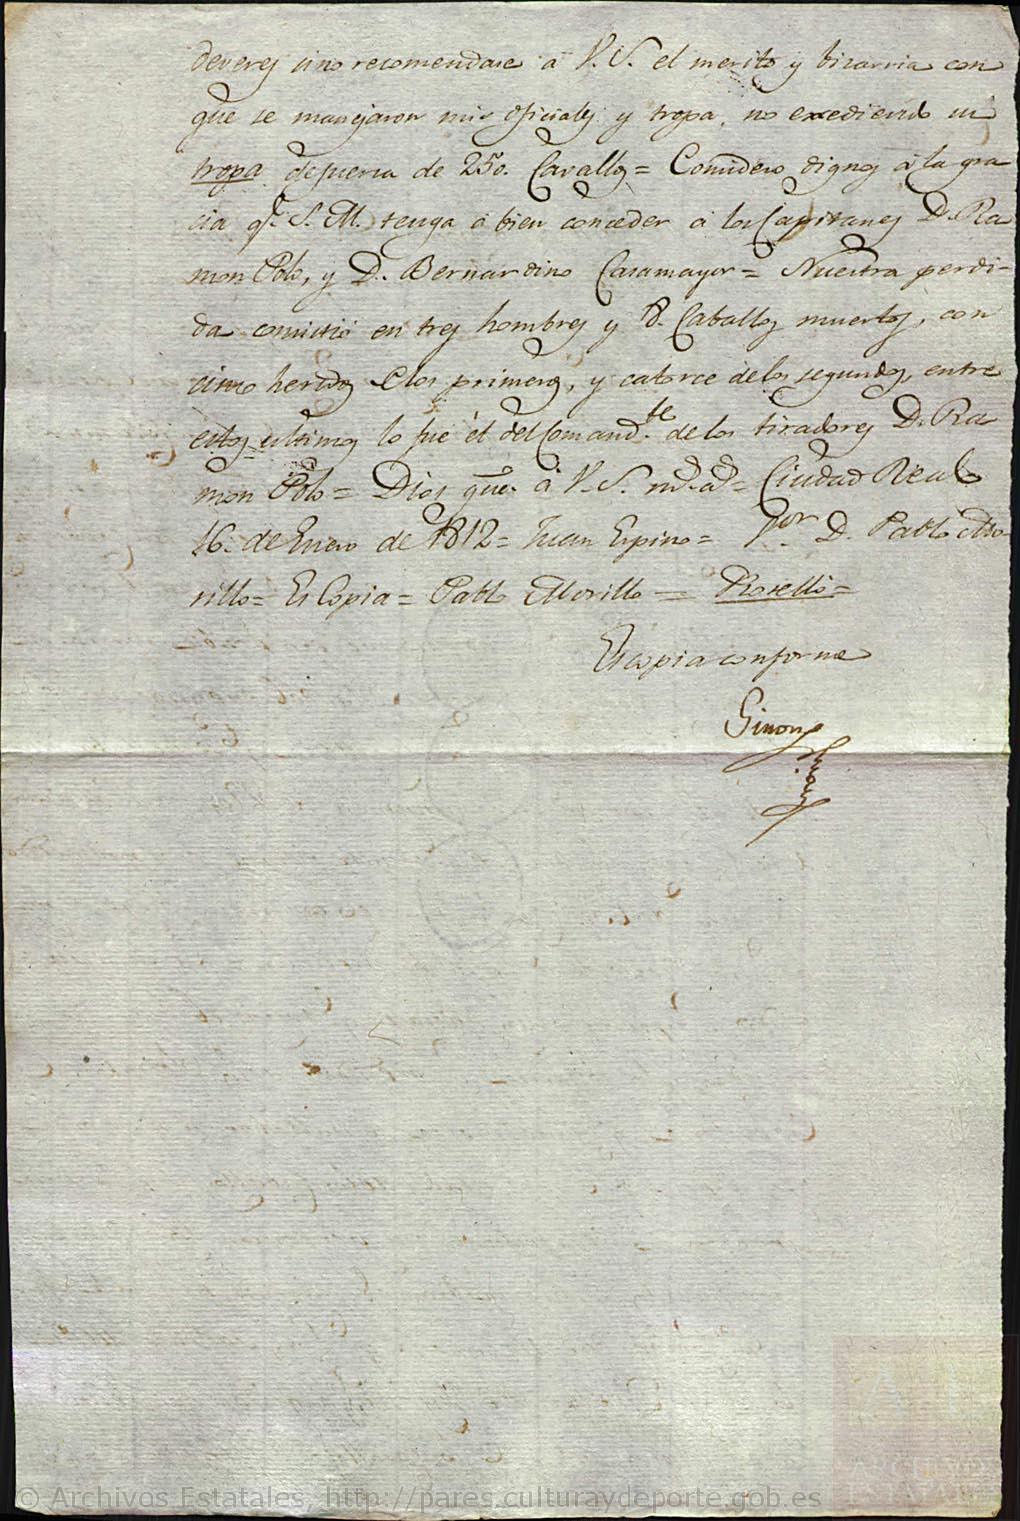 deveres sino recomendase á V.S. el merito y bizarria con
que se manejaron mis oficiales y tropa, no exediendo mi
tropa defuerza de 250. Cavallos = Considero dignos á la gra
cia qe. S. M. tenga á bien conceder á los Capitanes D. Ra
mon Polo, y D. Bernardino Casamayor = Nuestra perdi-
da consistió en tres hombres y 8. Caballos muertos, con
cinco heridos de los primeros, y catorce de los segundos, entre
estos ultimos lo fué él del Comandte. de los tiradores D. Ra
mon Polo = Dios gue. á V.S. ms. as. = Ciudad Real
16. de Enero de 1812 = Juan Espino = Sor. D. Pablo Mo-
rillo = Es Copia = Pablo Morillo = Roselló =
Es copia conforme
Simon
© Archivos Estatales, http://pares.culturaydeporte.gob.es
ARCHIVOS
ESTATALES